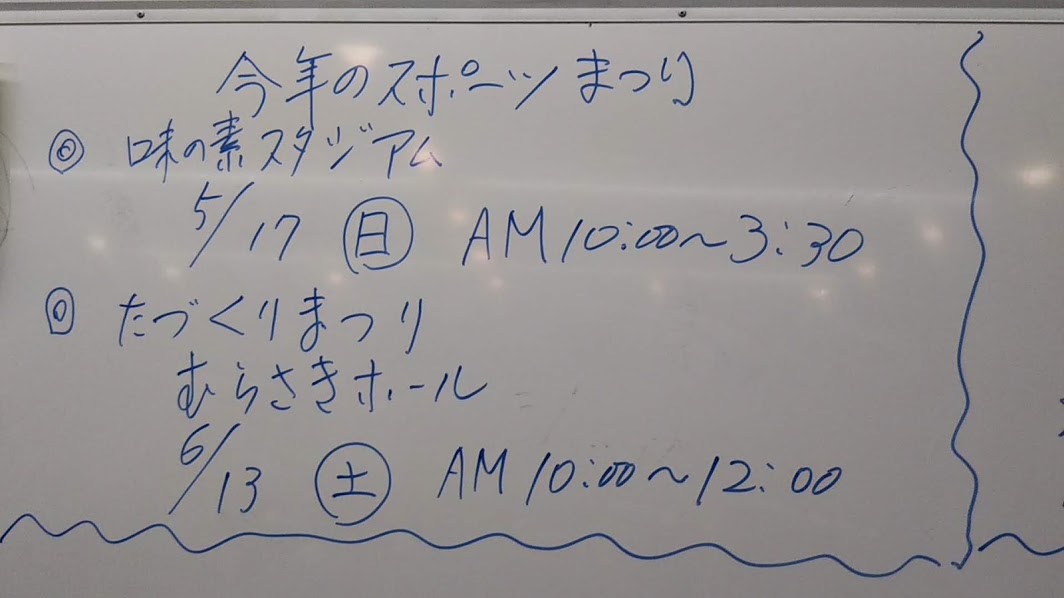 今年のスポーツまつり
◎ 味の素スタジアム
5/17 ㊐ AM10:00～3:30
◎ たづくりまつり
むらさきホール
6/13 ㊏ AM10:00～12:00